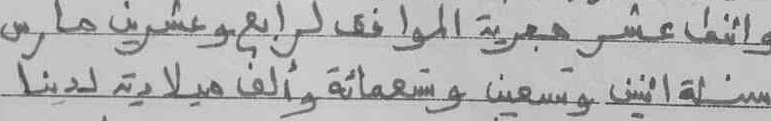 واثنا عشر هجرية الموافق لرابع وعشرين مارس
سنة اثنين وتسعين وتسعمائة وألف ميلادية لدينا